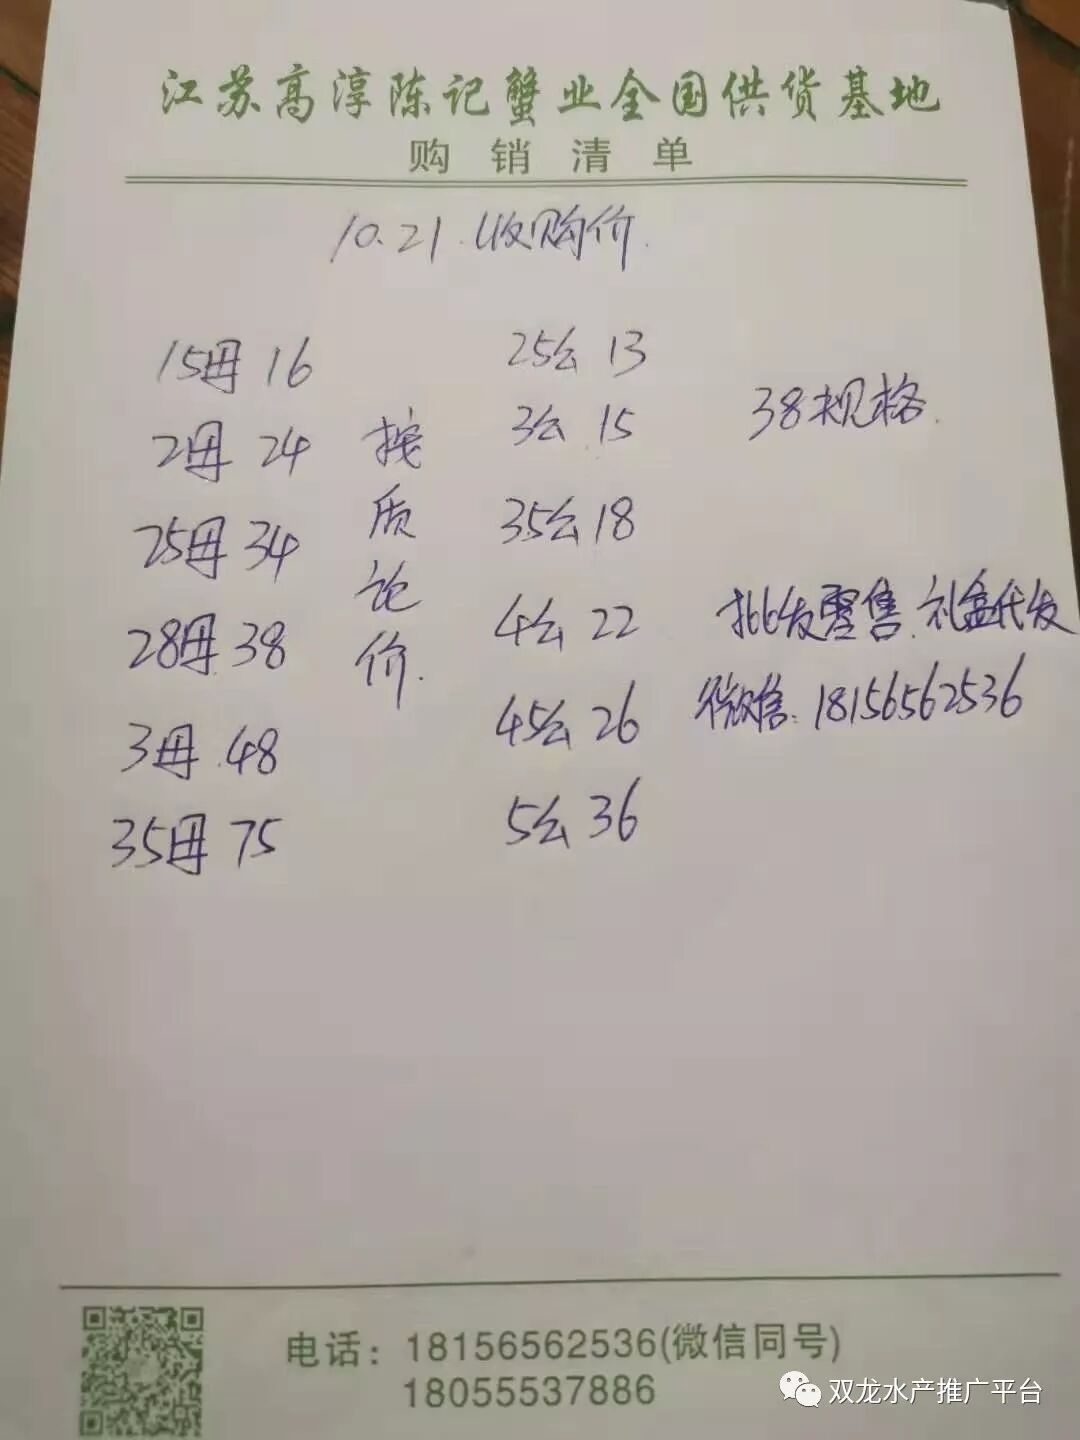 江苏高淳陈记蟹业全国供货基地
购销清单
10.21.收购价.
15母 16
2母 24
25母 34
28母.38
3母.48
35母 75
按质论价.
25公 13
3公.15
35公18
4公 22
45公 26
5公 36
38规格.
批发零售.礼盒代发
微信:18156562536
电话：18156562536(微信同号)
18055537886
双龙水产推广平台